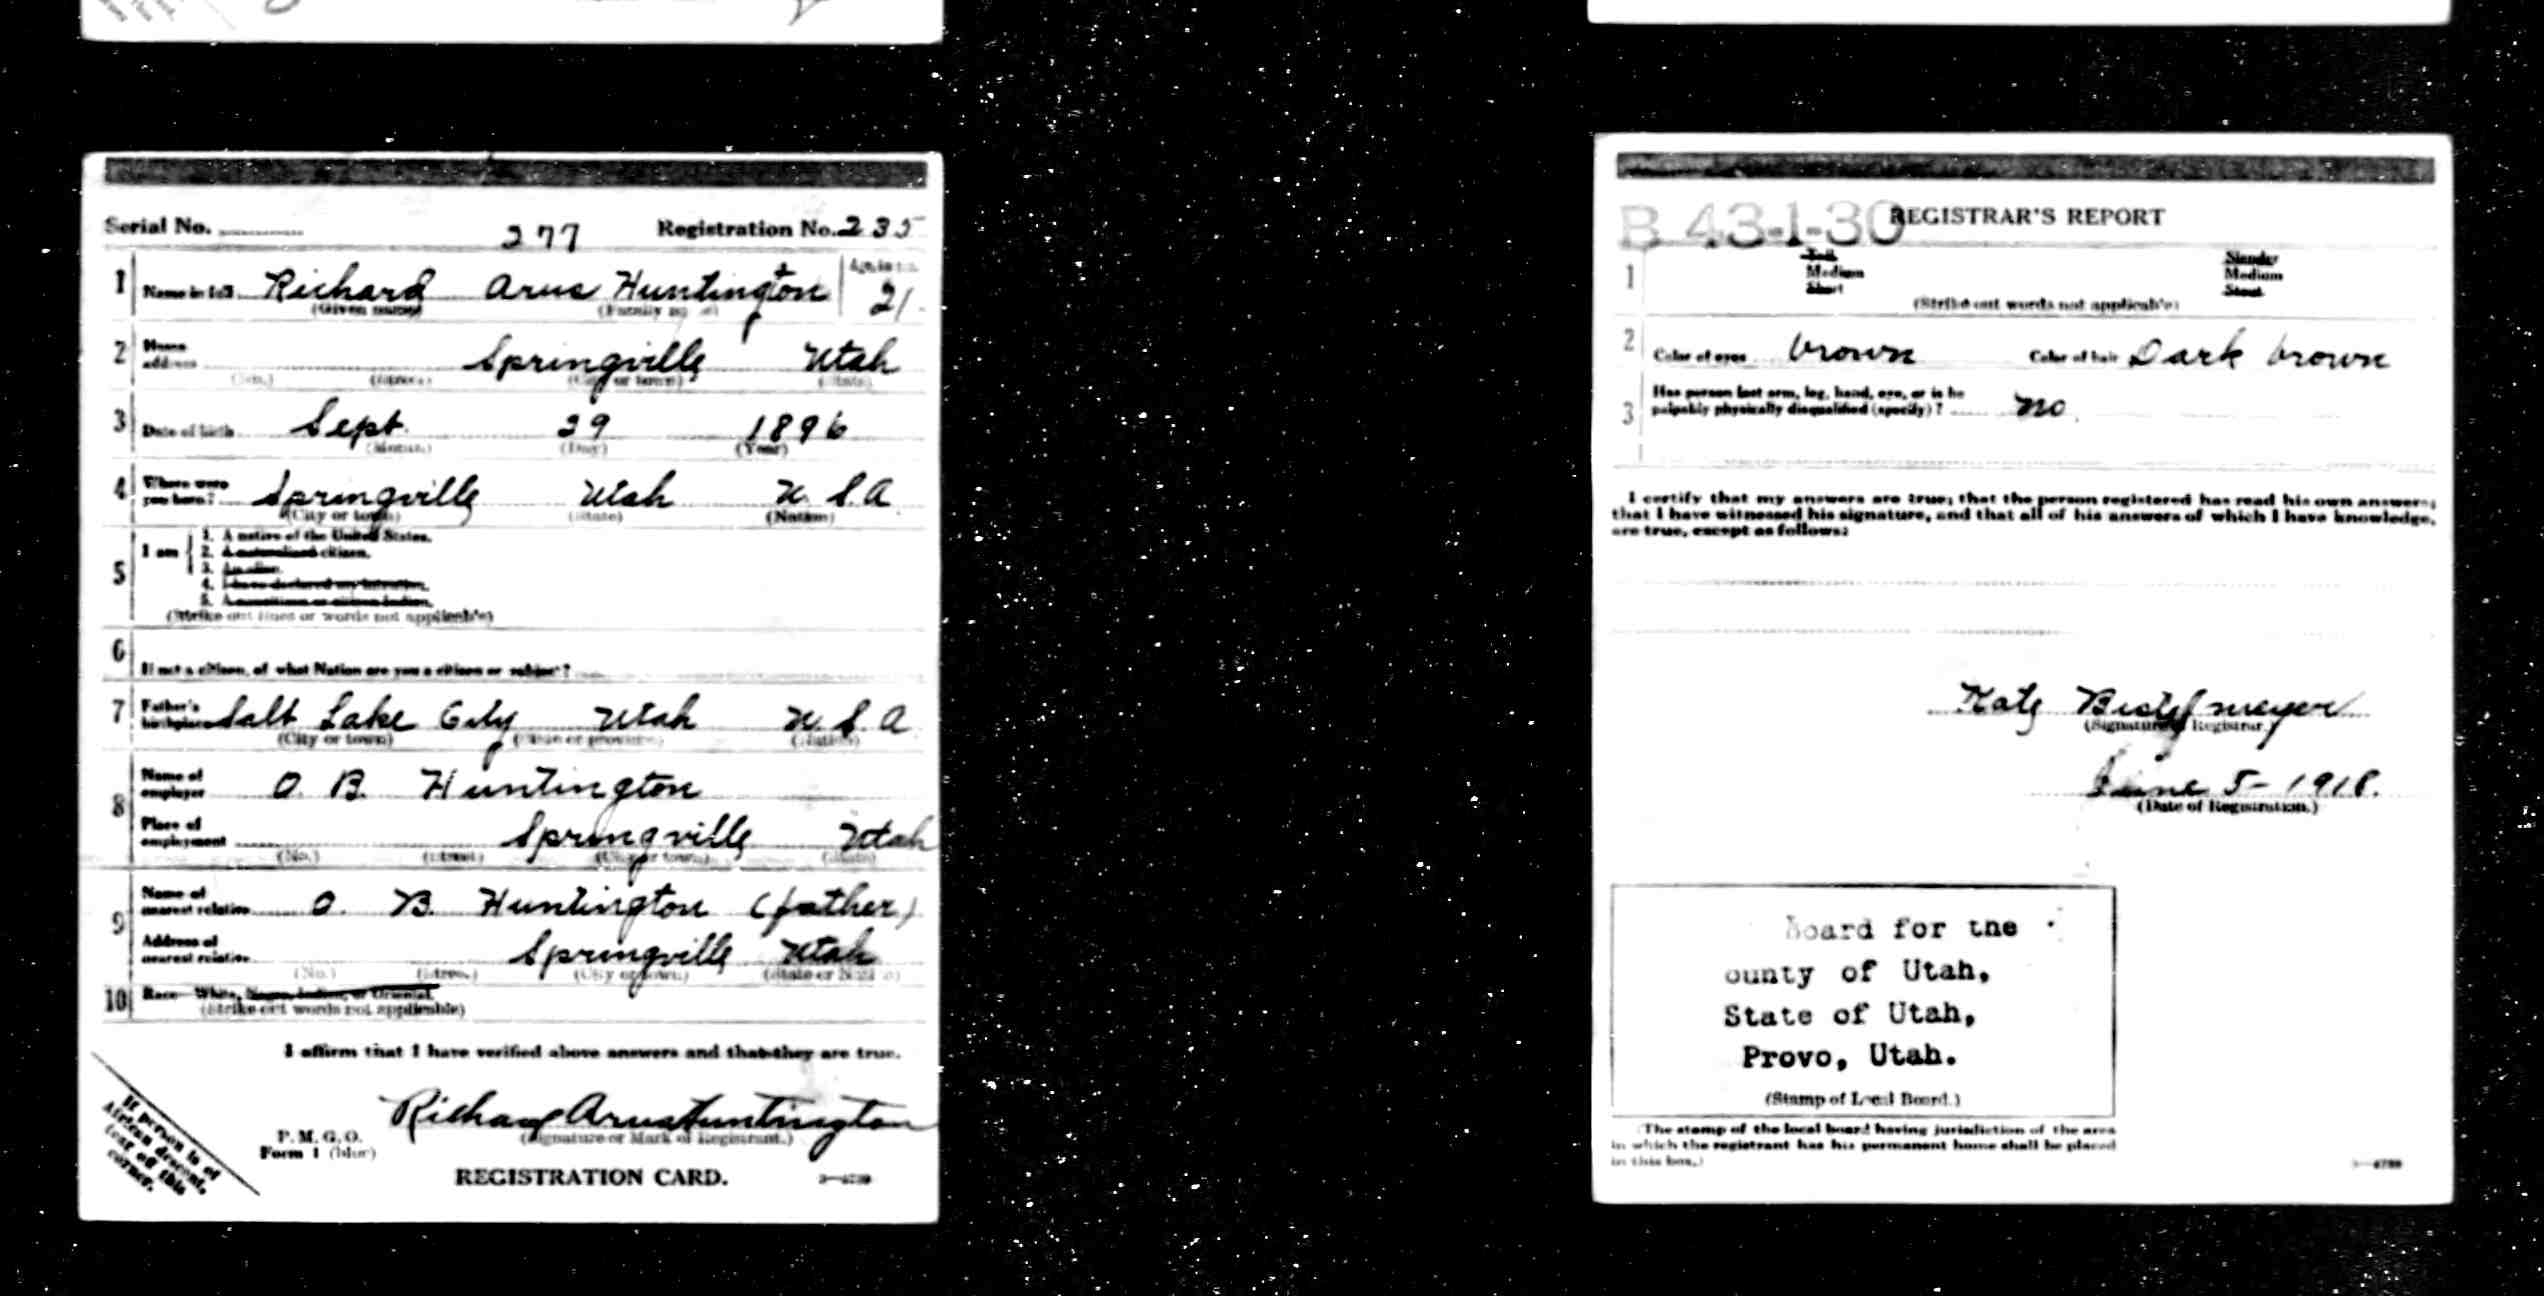 Serial No. 277 Registration No. 235
1 Name in full Richard Arus Huntington Age, in yrs. 21
(Given name) (Family name)
2 Home address Springville Utah
(No.) (Street) (City or town) (State)
3 Date of birth Sept. 29 1896
(Month) (Day) (Year)
4 Where were you born? Springville Utah U. S. A
(City or town) (State) (Nation)
5 I am
1. A native of the United States.
2. A naturalized citizen.
3. An alien.
4. I have declared my intention.
5. A noncitizen or citizen Indian.
(Strike out lines or words not applicable)
6 If not a citizen, of what Nation are you a citizen or subject?
7 Father's birthplace Salt Lake City Utah U. S. A
(City or town) (State or province) (Nation)
8 Name of employer O. B. Huntington
Place of employment Springville Utah
(No.) (Street) (City or town) (State)
9 Name of nearest relative O. B. Huntington (father)
Address of nearest relative Springville Utah
(No.) (Street) (City or town) (State or Nation)
10 Race—White, Negro, Indian, or Oriental.
(Strike out words not applicable)
I affirm that I have verified above answers and that they are true.
Richard Arus Huntington
(Signature or Mark of Registrant.)
P. M. G. O.
Form 1 (blue)
REGISTRATION CARD.
If person is of
African descent,
tear off this
corner.
B 43-1-30 REGISTRAR'S REPORT
1 Tall Slender
Medium Medium
Short Stout
(Strike out words not applicable)
2 Color of eyes brown Color of hair Dark brown
3 Has person lost arm, leg, hand, eye, or is he
palpably physically disqualified (specify)? no.
I certify that my answers are true; that the person registered has read his own answers;
that I have witnessed his signature, and that all of his answers of which I have knowledge,
are true, except as follows:
Kate
(Signature of Registrar.)
June 5-1918.
(Date of Registration.)
Board for the
ounty of Utah,
State of Utah,
Provo, Utah.
(Stamp of Local Board.)
(The stamp of the local board having jurisdiction of the area
in which the registrant has his permanent home shall be placed
in this box.)